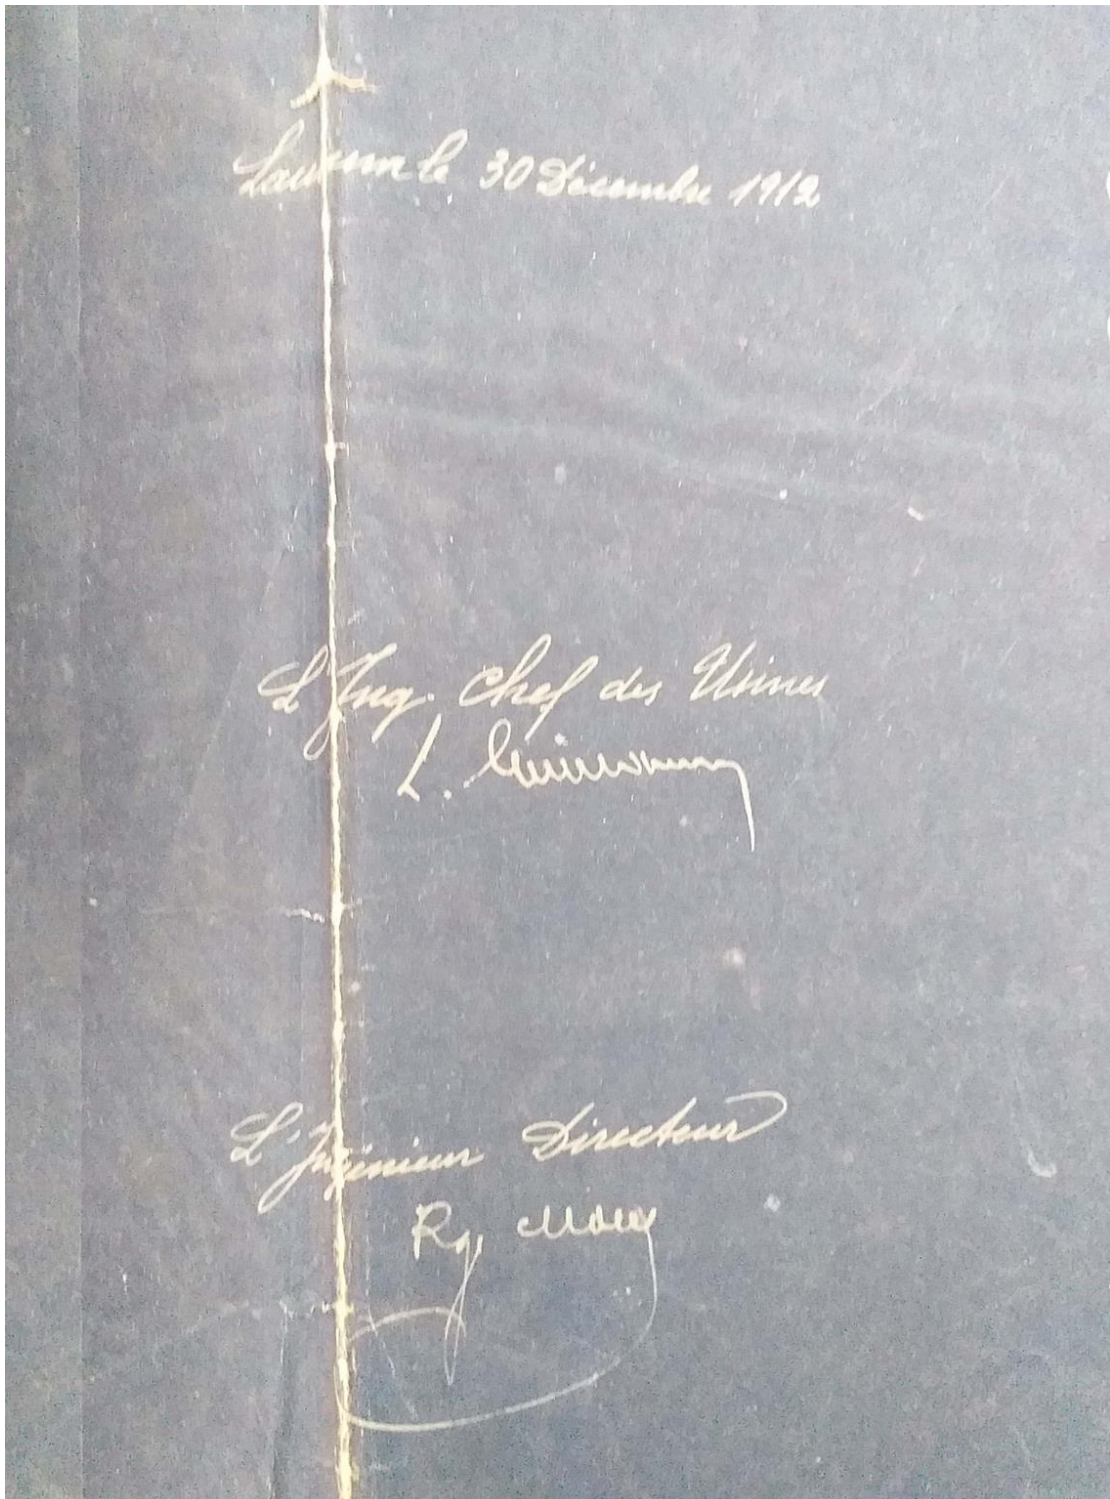 Laurium le 30 Décembre 1912
L'Ing. Chef des Usines
L.
L'Ingénieur Directeur